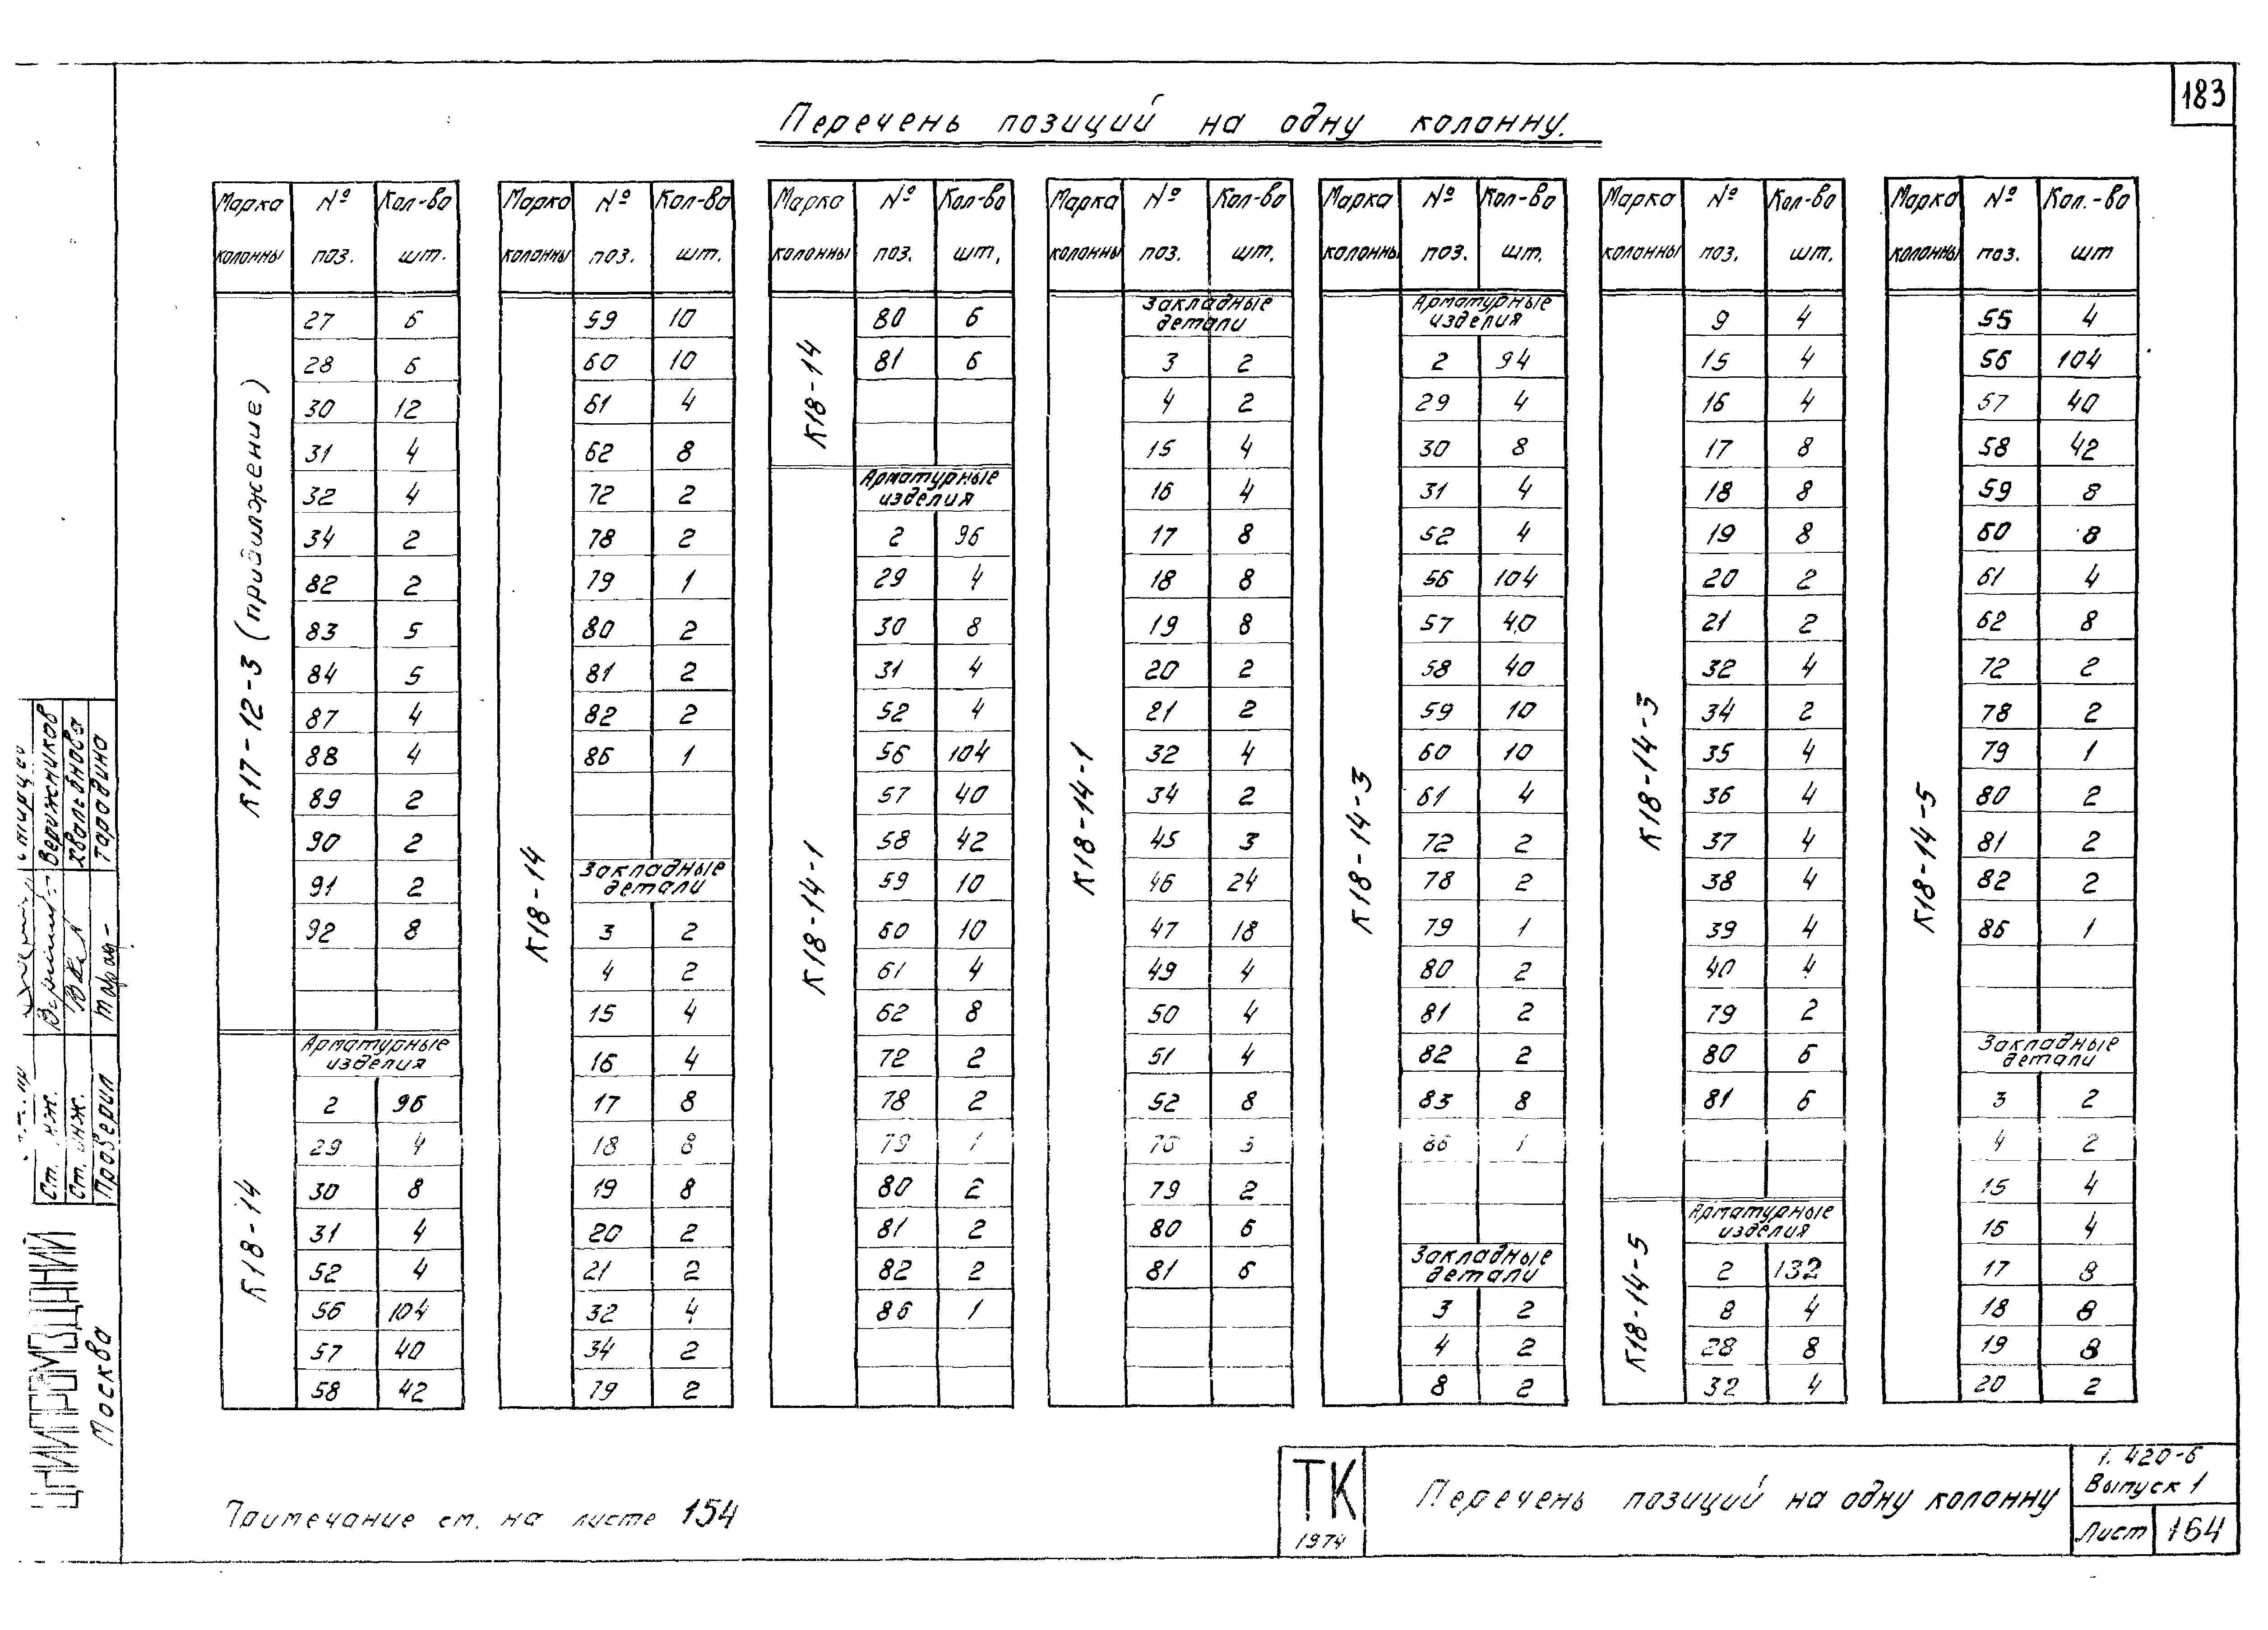 183
Перечень позиций на одну колонну.
Марка колонны № поз. Кол-во шт.
К17-12-3 (продолжение)
27 6
28 6
30 12
31 4
32 4
34 2
82 2
83 5
84 5
87 4
88 4
89 2
90 2
91 2
92 8
К18-14
Арматурные изделия
2 96
29 4
30 8
31 4
52 4
56 104
57 40
58 42
Марка колонны № поз. Кол-во шт.
К18-14
59 10
60 10
61 4
62 8
72 2
78 2
79 1
80 2
81 2
82 2
86 1
Закладные детали
3 2
4 2
15 4
16 4
17 8
18 8
19 8
20 2
21 2
32 4
34 2
79 2
Марка колонны № поз. Кол-во шт.
К18-14
80 6
81 6
К18-14-1
Арматурные изделия
2 96
29 4
30 8
31 4
52 4
56 104
57 40
58 42
59 10
60 10
61 4
62 8
72 2
78 2
79 1
80 2
81 2
82 2
86 1
Марка колонны № поз. Кол-во шт.
К18-14-1
Закладные детали
3 2
4 2
15 4
16 4
17 8
18 8
19 8
20 2
21 2
32 4
34 2
45 3
46 24
47 18
49 4
50 4
51 4
52 8
79 2
80 6
81 6
Марка колонны № поз. Кол-во шт.
К18-14-3
Арматурные изделия
2 94
29 4
30 8
31 4
52 4
56 104
57 40
58 40
59 10
60 10
61 4
72 2
78 2
79 1
80 2
81 2
82 2
83 8
86 1
Закладные детали
3 2
4 2
8 2
Марка колонны № поз. Кол-во шт.
К18-14-3
9 4
15 4
16 4
17 8
18 8
19 8
20 2
21 2
32 4
34 2
35 4
36 4
37 4
38 4
39 4
40 4
79 2
80 6
81 6
К18-14-5
Арматурные изделия
2 132
8 4
28 8
32 4
Марка колонны № поз. Кол.-во шт
К18-14-5
55 4
56 104
57 40
58 42
59 8
60 8
61 4
62 8
72 2
78 2
79 1
80 2
81 2
82 2
86 1
Закладные детали
3 2
4 2
15 4
16 4
17 8
18 8
19 8
20 2
Примечание см. на листе 154
ТК
1974
Перечень позиций на одну колонну
1.420-6
Выпуск 1
Лист 164
Ст. инж. Верижников
Ст. инж. Хвальбнова
Проверил Тарадина
ЦНИИПРОМЗДАНИЙ
Москва